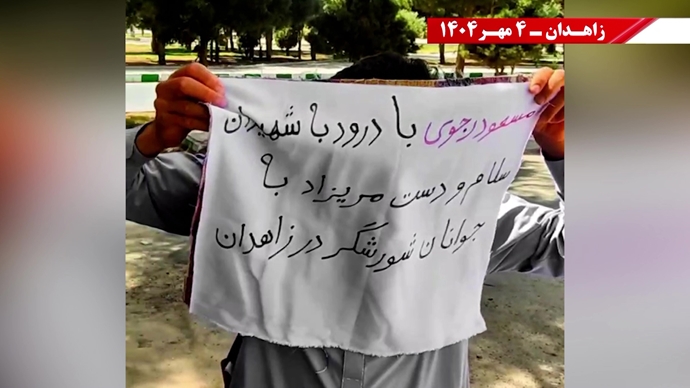 زاهدان ــ ۴ مهـر ۱۴۰۴
مسعود رجوی با درود به شهیدان
سلام و دست مریزاد به
جوانان شورشگر در زاهدان